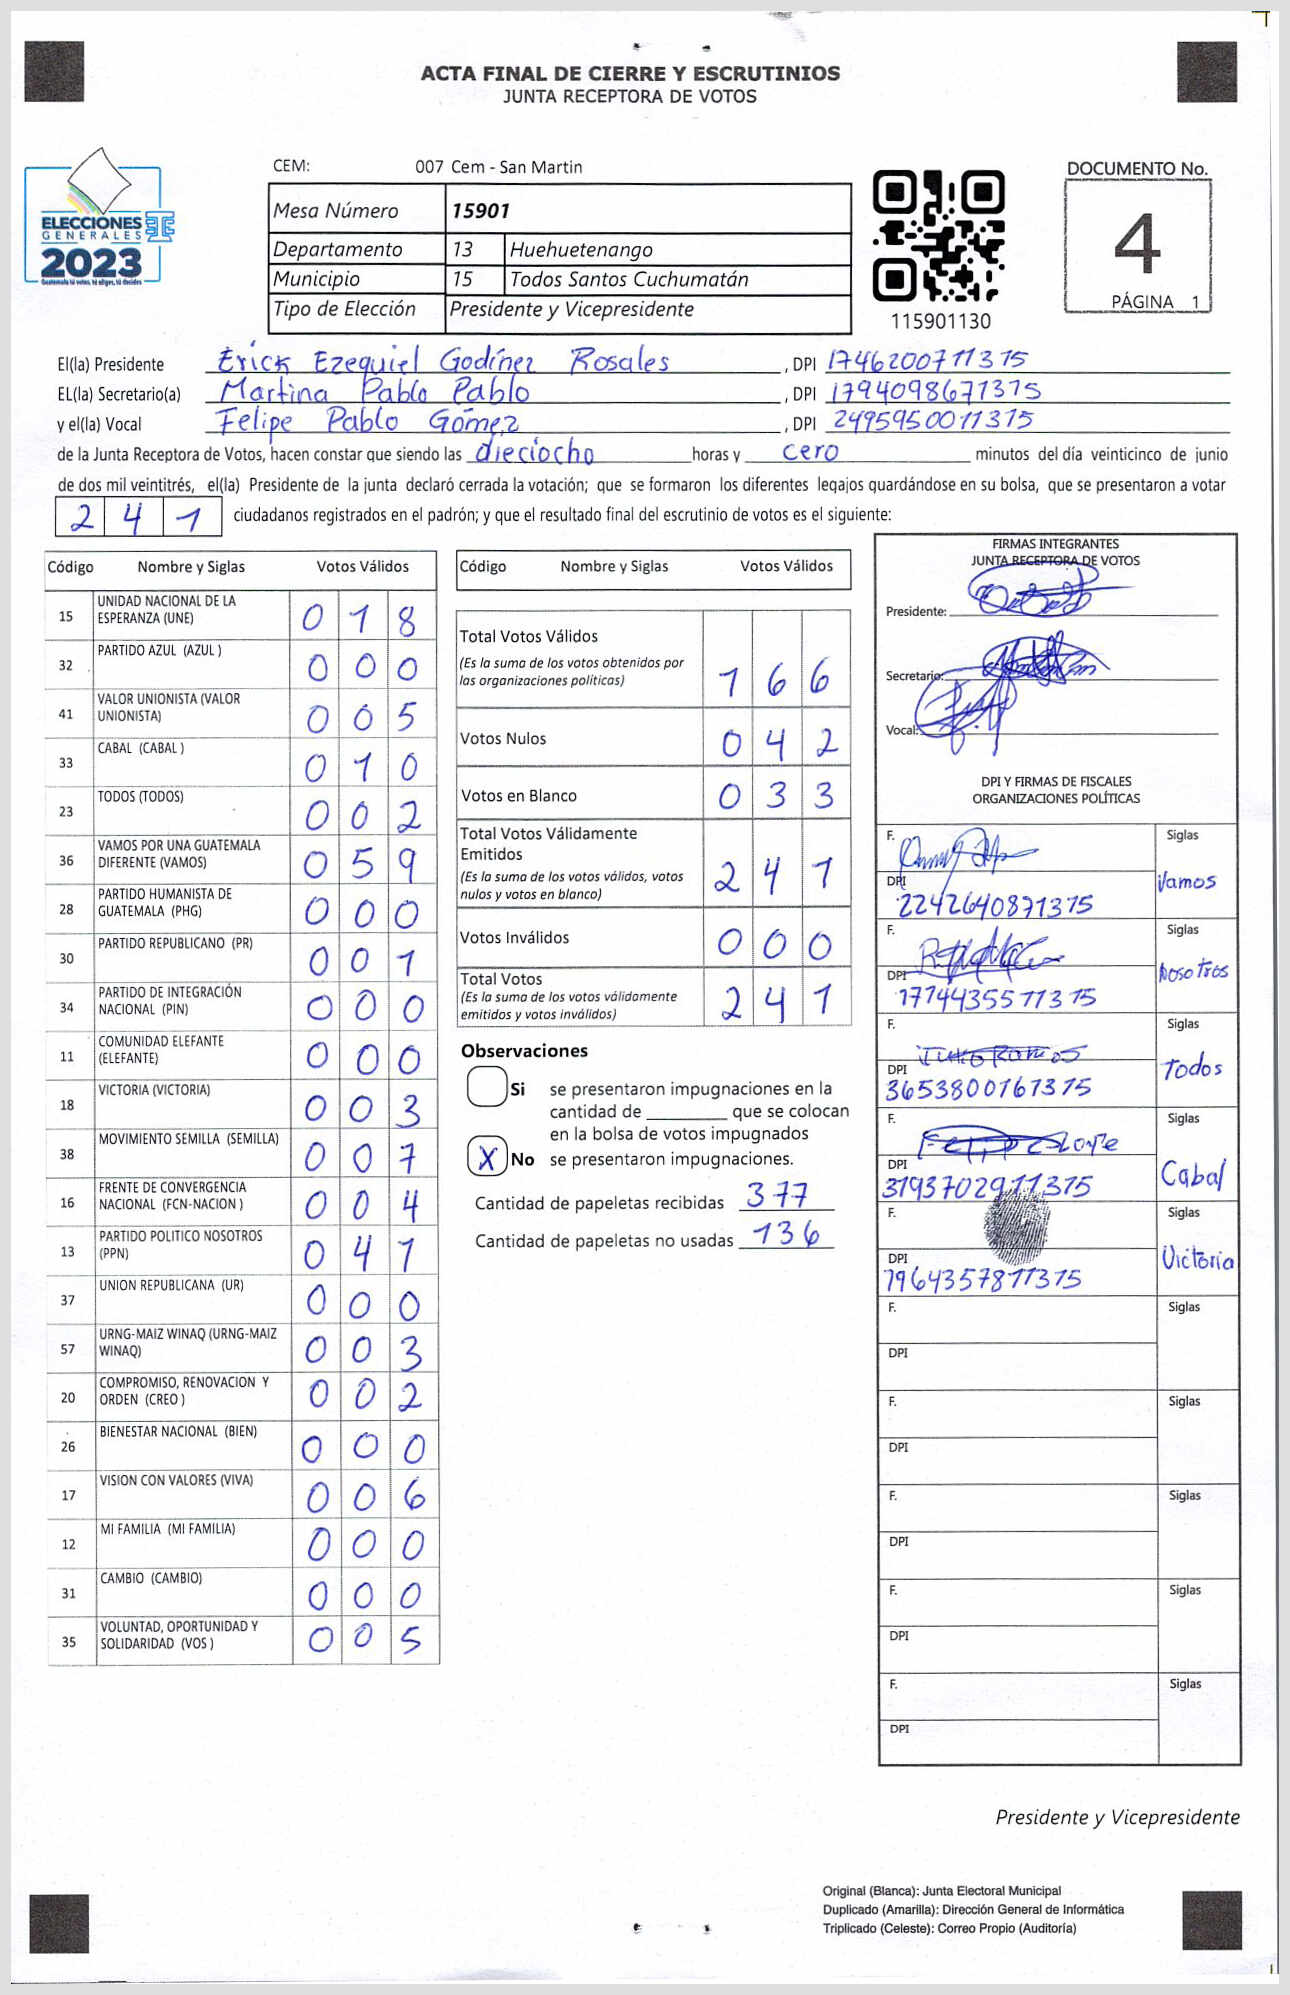 ACTA FINAL DE CIERRE Y ESCRUTINIOS
JUNTA RECEPTORA DE VOTOS
ELECCIONES
GENERALES
2023
Guatemala tú votas, tú eliges, tú decides
CEM: 007 Cem - San Martin
Mesa Número 15901
Departamento 13 Huehuetenango
Municipio 15 Todos Santos Cuchumatán
Tipo de Elección Presidente y Vicepresidente
115901130
DOCUMENTO No.
4
PÁGINA 1
El(la) Presidente Erick Ezequiel Godínez Rosales , DPI 1746200711315
EL(la) Secretario(a) Martina Pablo Pablo , DPI 1794098671315
y el(la) Vocal Felipe Pablo Gómez , DPI 2495950011315
de la Junta Receptora de Votos, hacen constar que siendo las dieciocho horas y cero minutos del día veinticinco de junio
de dos mil veintitrés, el(la) Presidente de la junta declaró cerrada la votación; que se formaron los diferentes legajos guardándose en su bolsa, que se presentaron a votar
2 4 1 ciudadanos registrados en el padrón; y que el resultado final del escrutinio de votos es el siguiente:
Código Nombre y Siglas Votos Válidos
15 UNIDAD NACIONAL DE LA ESPERANZA (UNE) 0 1 8
32 PARTIDO AZUL (AZUL ) 0 0 0
41 VALOR UNIONISTA (VALOR UNIONISTA) 0 0 5
33 CABAL (CABAL ) 0 1 0
23 TODOS (TODOS) 0 0 2
36 VAMOS POR UNA GUATEMALA DIFERENTE (VAMOS) 0 5 9
28 PARTIDO HUMANISTA DE GUATEMALA (PHG) 0 0 0
30 PARTIDO REPUBLICANO (PR) 0 0 1
34 PARTIDO DE INTEGRACIÓN NACIONAL (PIN) 0 0 0
11 COMUNIDAD ELEFANTE (ELEFANTE) 0 0 0
18 VICTORIA (VICTORIA) 0 0 3
38 MOVIMIENTO SEMILLA (SEMILLA) 0 0 7
16 FRENTE DE CONVERGENCIA NACIONAL (FCN-NACION ) 0 0 4
13 PARTIDO POLITICO NOSOTROS (PPN) 0 4 1
37 UNION REPUBLICANA (UR) 0 0 0
57 URNG-MAIZ WINAQ (URNG-MAIZ WINAQ) 0 0 3
20 COMPROMISO, RENOVACION Y ORDEN (CREO ) 0 0 2
26 BIENESTAR NACIONAL (BIEN) 0 0 0
17 VISION CON VALORES (VIVA) 0 0 6
12 MI FAMILIA (MI FAMILIA) 0 0 0
31 CAMBIO (CAMBIO) 0 0 0
35 VOLUNTAD, OPORTUNIDAD Y SOLIDARIDAD (VOS ) 0 0 5
Código Nombre y Siglas Votos Válidos
Total Votos Válidos
(Es la suma de los votos obtenidos por
las organizaciones políticas) 1 6 6
Votos Nulos 0 4 2
Votos en Blanco 0 3 3
Total Votos Válidamente
Emitidos
(Es la suma de los votos válidos, votos
nulos y votos en blanco) 2 4 1
Votos Inválidos 0 0 0
Total Votos
(Es la suma de los votos válidamente
emitidos y votos inválidos) 2 4 1
Observaciones
Si se presentaron impugnaciones en la
cantidad de ________ que se colocan
en la bolsa de votos impugnados
X No se presentaron impugnaciones.
Cantidad de papeletas recibidas 377
Cantidad de papeletas no usadas 136
FIRMAS INTEGRANTES
JUNTA RECEPTORA DE VOTOS
Presidente:
Secretario:
Vocal:
DPI Y FIRMAS DE FISCALES
ORGANIZACIONES POLÍTICAS
F. Siglas
Vamos
DPI
2242640871315
F. Siglas
Nosotros
DPI
1774435511315
F. Siglas
Todos
DPI
3653800161315
F. Siglas
Cabal
DPI
3193702911315
F. Siglas
Victoria
DPI
7964357811315
F. Siglas
DPI
F. Siglas
DPI
F. Siglas
DPI
F. Siglas
DPI
F. Siglas
DPI
Presidente y Vicepresidente
Original (Blanca): Junta Electoral Municipal
Duplicado (Amarilla): Dirección General de Informática
Triplicado (Celeste): Correo Propio (Auditoría)